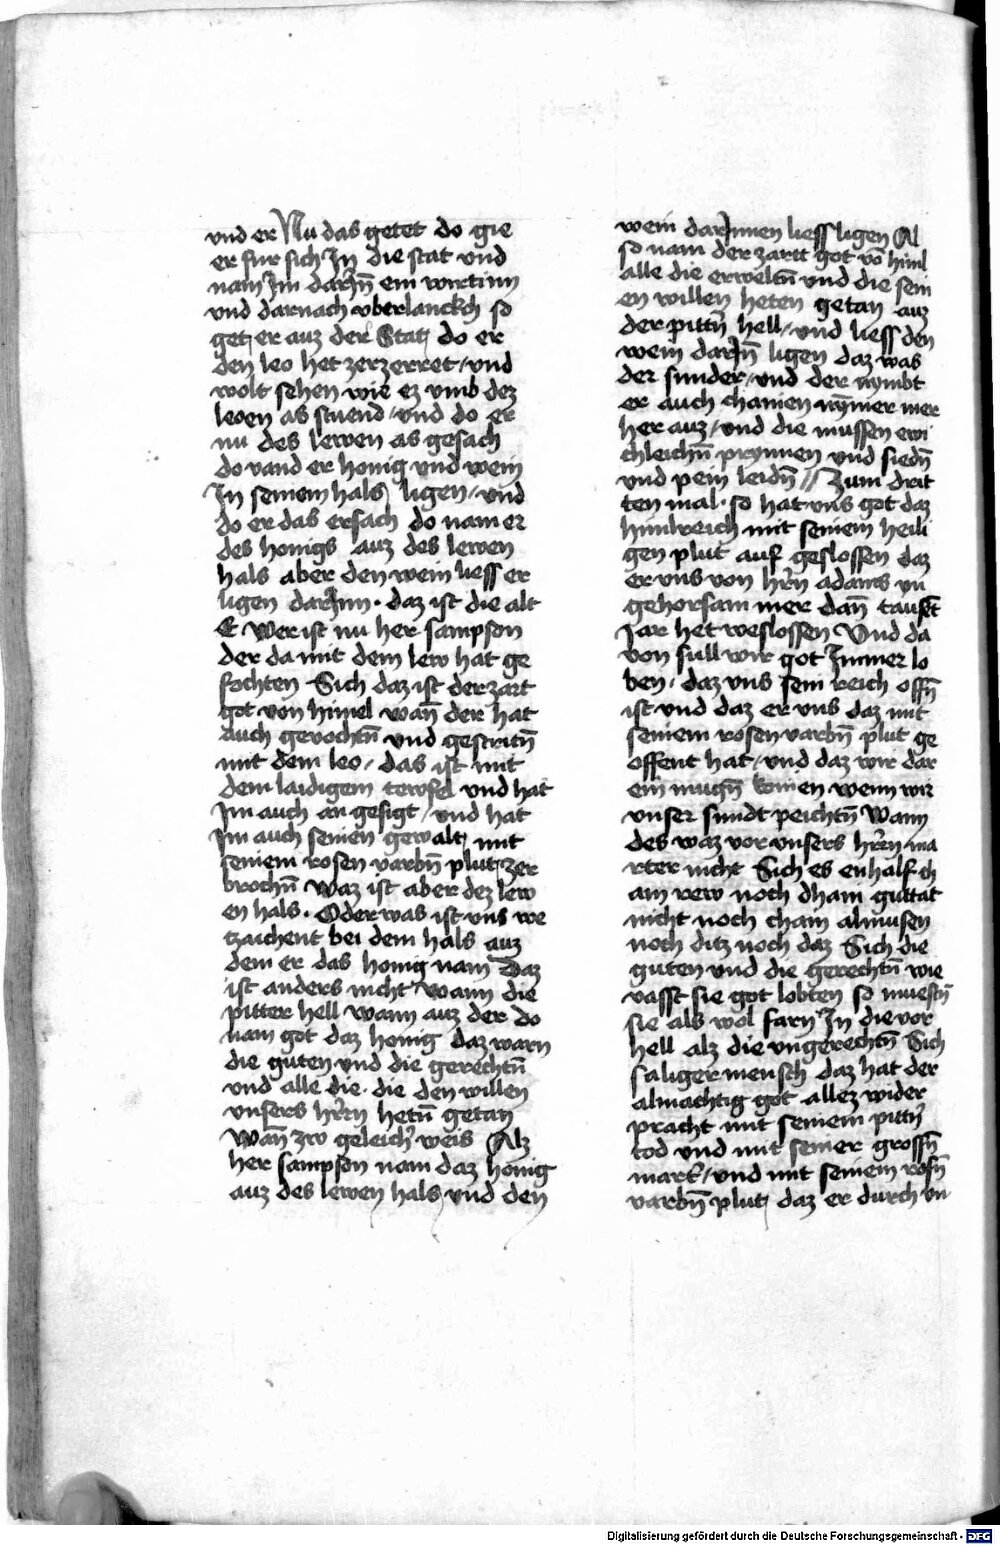 vnd er Nu das getet do gie
er fur sich Jn die stat vnd
nam Jm darJnn̄ ein wirtinn
vnd darnach vberlanckch so
get er auz der Stat do er
den leo het zerzerret / vnd
wolt sehen wie ez vmb dez
leoen as stuend / vnd do er
nu des lewen as gesach
do vand er honig vnd wein
Jn seinem hals ligen / vnd
do er das ersach do nam er
des honigs auz des lewen
hals aber den wein liess er
ligen darJnn · daz ist die alt
E Wer ist nu her sampson
der da mit dem lew hat ge
fochten Sich daz ist der zart
got von himel wan̄ der hat
auch gevochtn̄ vnd gestritn̄
mit dem leo / das ist mit
dem laidigem tewfel vnd hat
Jm auch an gesigt / vnd hat
Jm auch seinen gewalt mit
seinem rosen varbn̄ plut zer
brochn̄ Waz ist aber dez lew
en hals · Oder was ist vns we
tzaichent bei dem hals auz
dem er das honig nam Daz
ist anders nicht Wann die
pitter hell wann auz der do
nam got daz honig daz warn
die guten vnd die gerechtn̄
vnd alle die · die den willen
vnsers hr̄n hetn̄ getan
Wan̄ zw geleicher weis Alz
her sampson nam daz honig
auz des lewen hals vnd den
wein darJnnen liess ligen Al
so nam der zart got vō himl
alle die erweltn̄ vnd die sein
en willen heten getan auz
der pittn̄ hell / vnd liess den
wein darJn̄ ligen daz was
der sunder / vnd der nymbt
er auch chainen nȳmer mer
her auz / vnd die mussen ewi
chleichn̄ prynnen vnd siedn̄
vnd pein leidn̄ // Zum drit
ten mal · so hat vns got daz
himlreich mit seinem heili
gen plut auf geslossen daz
er vns von hr̄n adams vn
gehorsam mer dan̄ tausēt
Jar het weslossen Vnd da
von sull wir got Jmmer lo
ben / daz vns sein reich offn̄
ist vnd daz er vns daz mit
seinem rosen varbn̄ plut ge
offent hat / vnd daz wir dar
ein mugn̄ komen wenn wir
vnser sundt peichtn̄ Wann
des waz vor vnsers hr̄n ma
rter nicht Sich es enhalf ch
ain rew noch dhain guttat
nicht noch chain almusen
noch ditz noch daz Sich die
guten vnd die gerechtn̄ wie
vasst sie got lobten so muestn̄
sie als wol farn̄ Jn die vor
hell alz die vngerechtn̄ Sich
saliger mensch daz hat der
almachtig got allez wider
pracht mit seinem pittn̄
tod vnd mit seiner grossn̄
mart / vnd mit seinem rosn̄
varbn̄ plut daz er durch vn
Digitalisierung gefördert durch die Deutsche Forschungsgemeinschaft - DFG